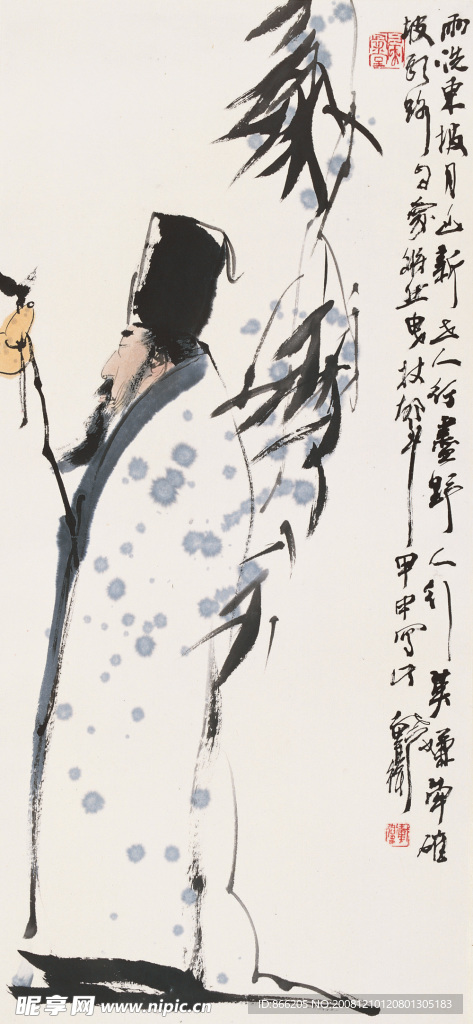 雨洗東坡月色新市人行盡野人行莫嫌犖確
坡頭路自愛鏗然曳杖聲 甲申寫
昵享网 www.nipic.cn
ID:866205 NO:20081210120801305183